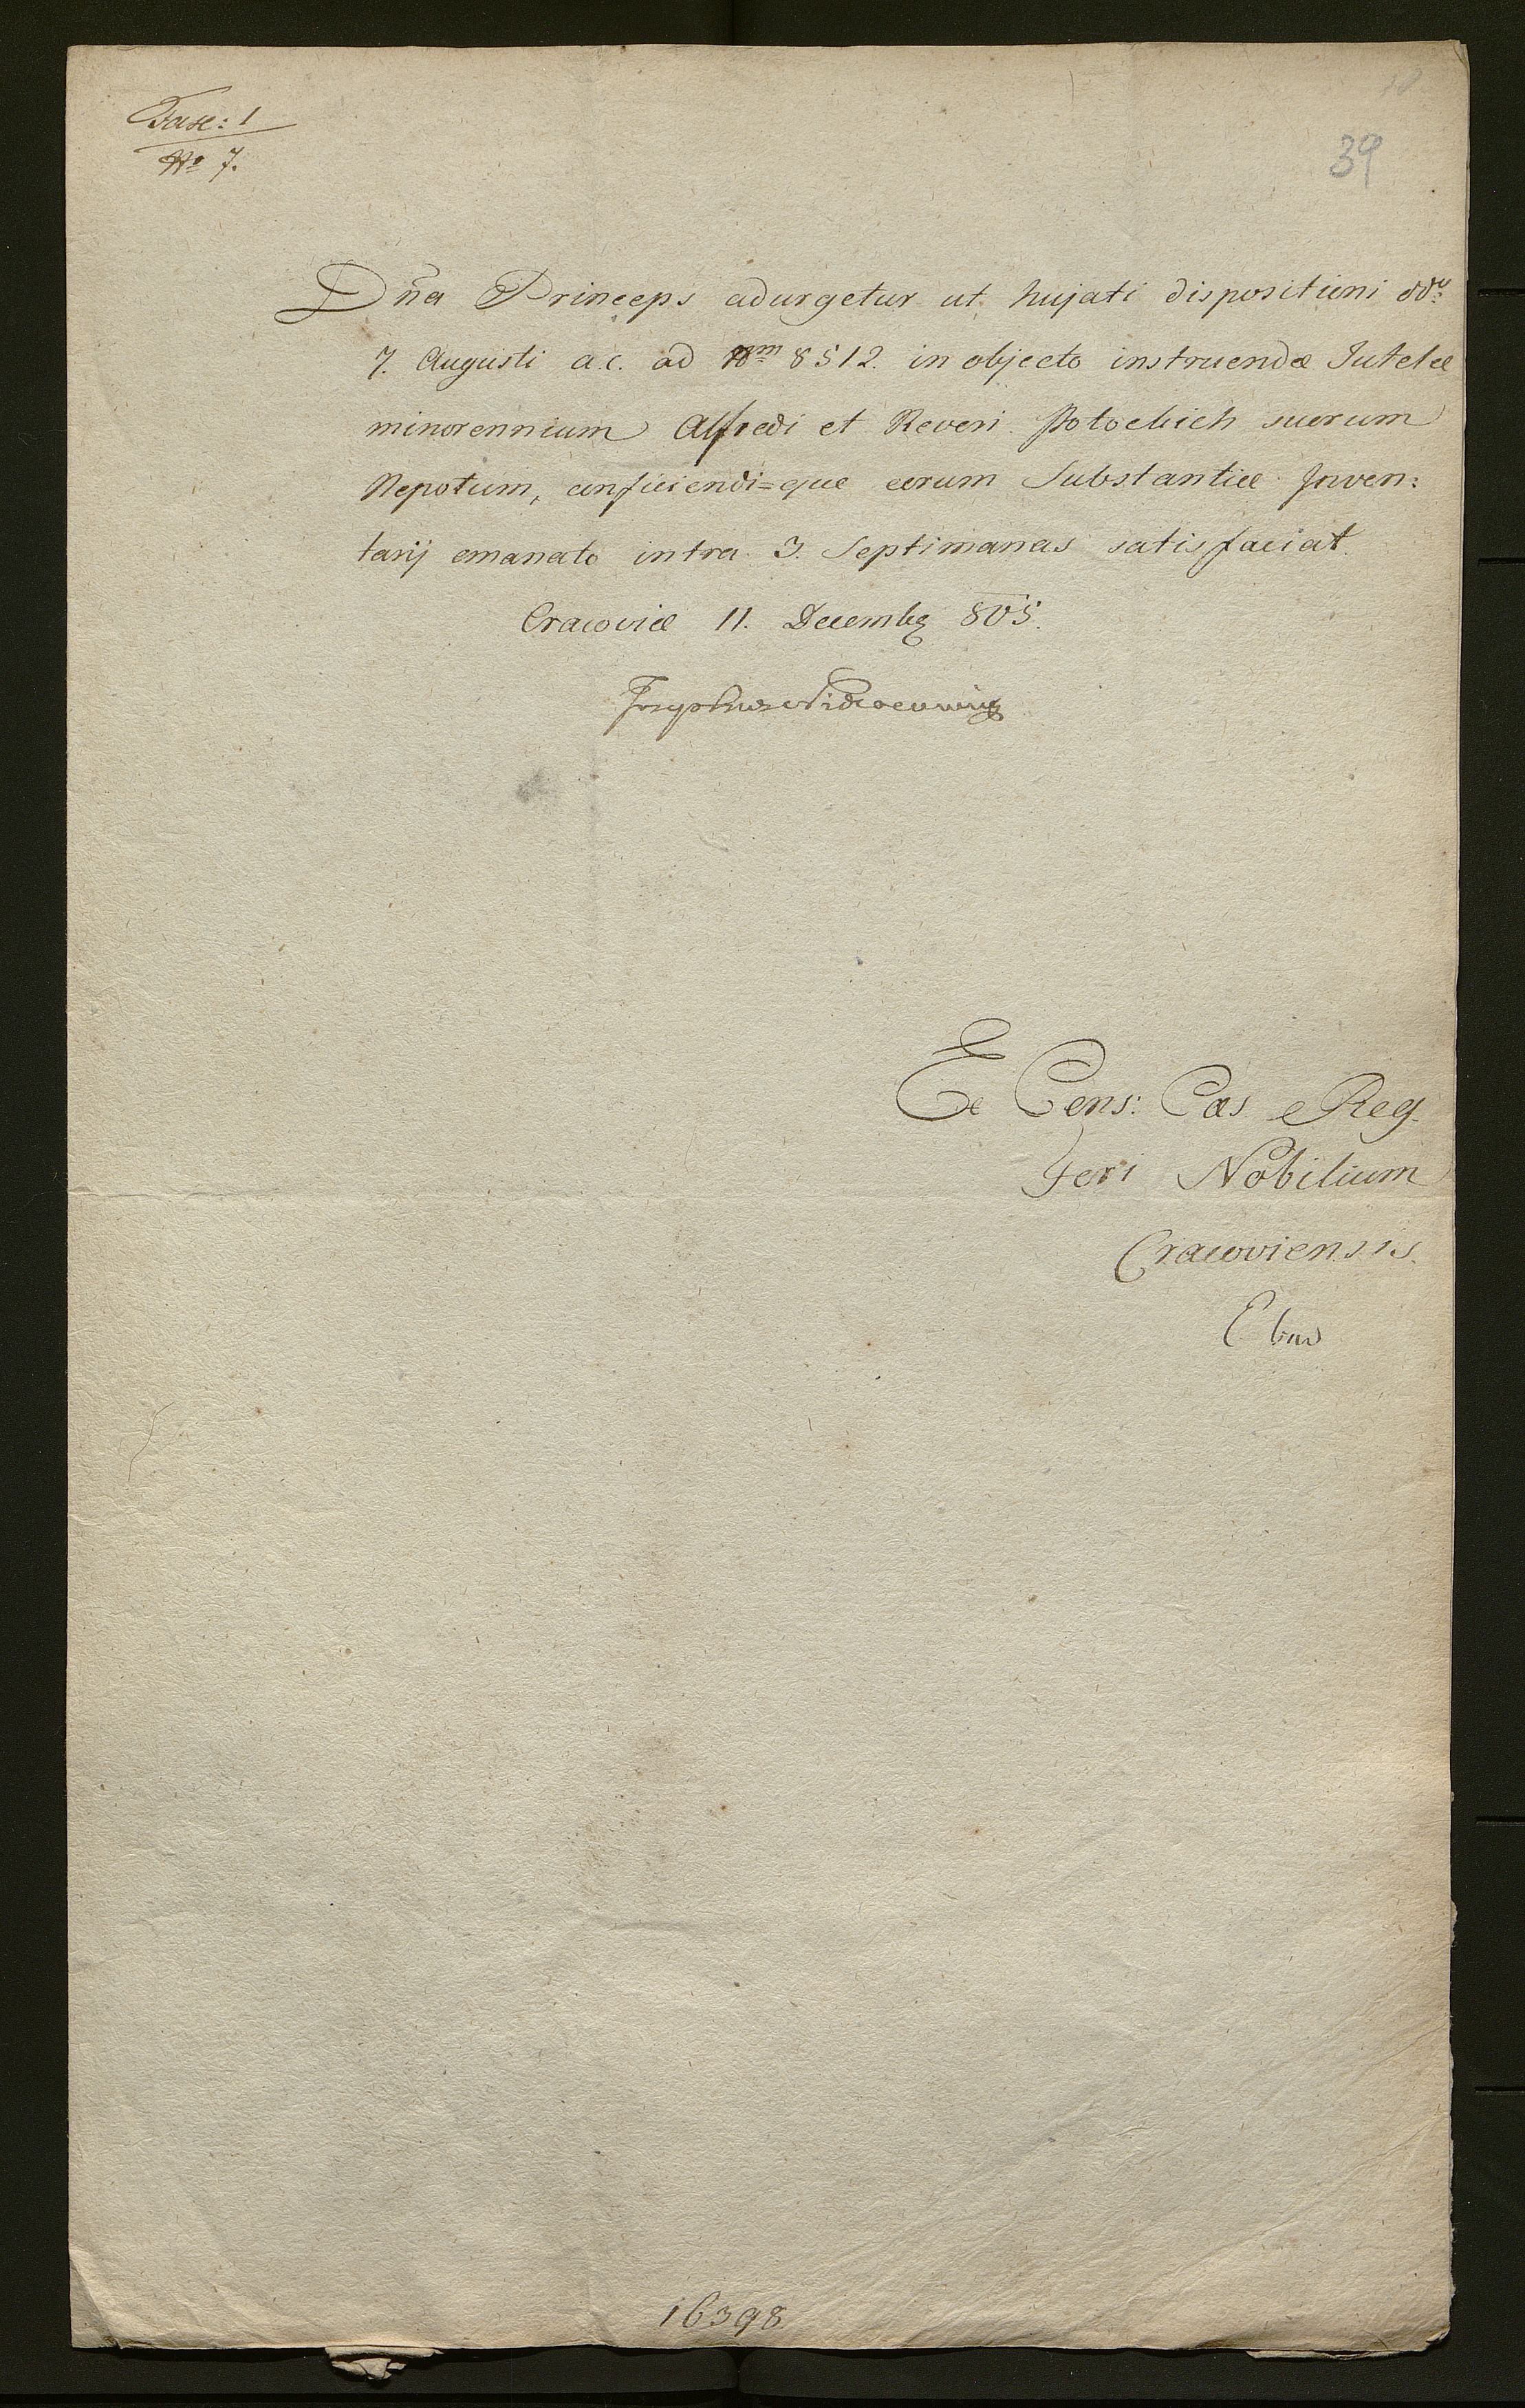 Fasc: 1
No 7.
39
Dña Princeps adurgetur ut hujati dispositioni ddto
7. Augusti a.c. ad Num 8512. in objecto instruendæ Tutelæ
minorennium Alfredi et Reveri Potockich suorum
Nepotum, conficiendi=que eorum Substantiæ Inven:
tarij emanato intra 3. Septimanas satisfaciat.
Cracoviæ 11. Decembr 805.
Josephus
E Cons: Cæs Reg.
Fori Nobilium
Cracoviensis.
16398